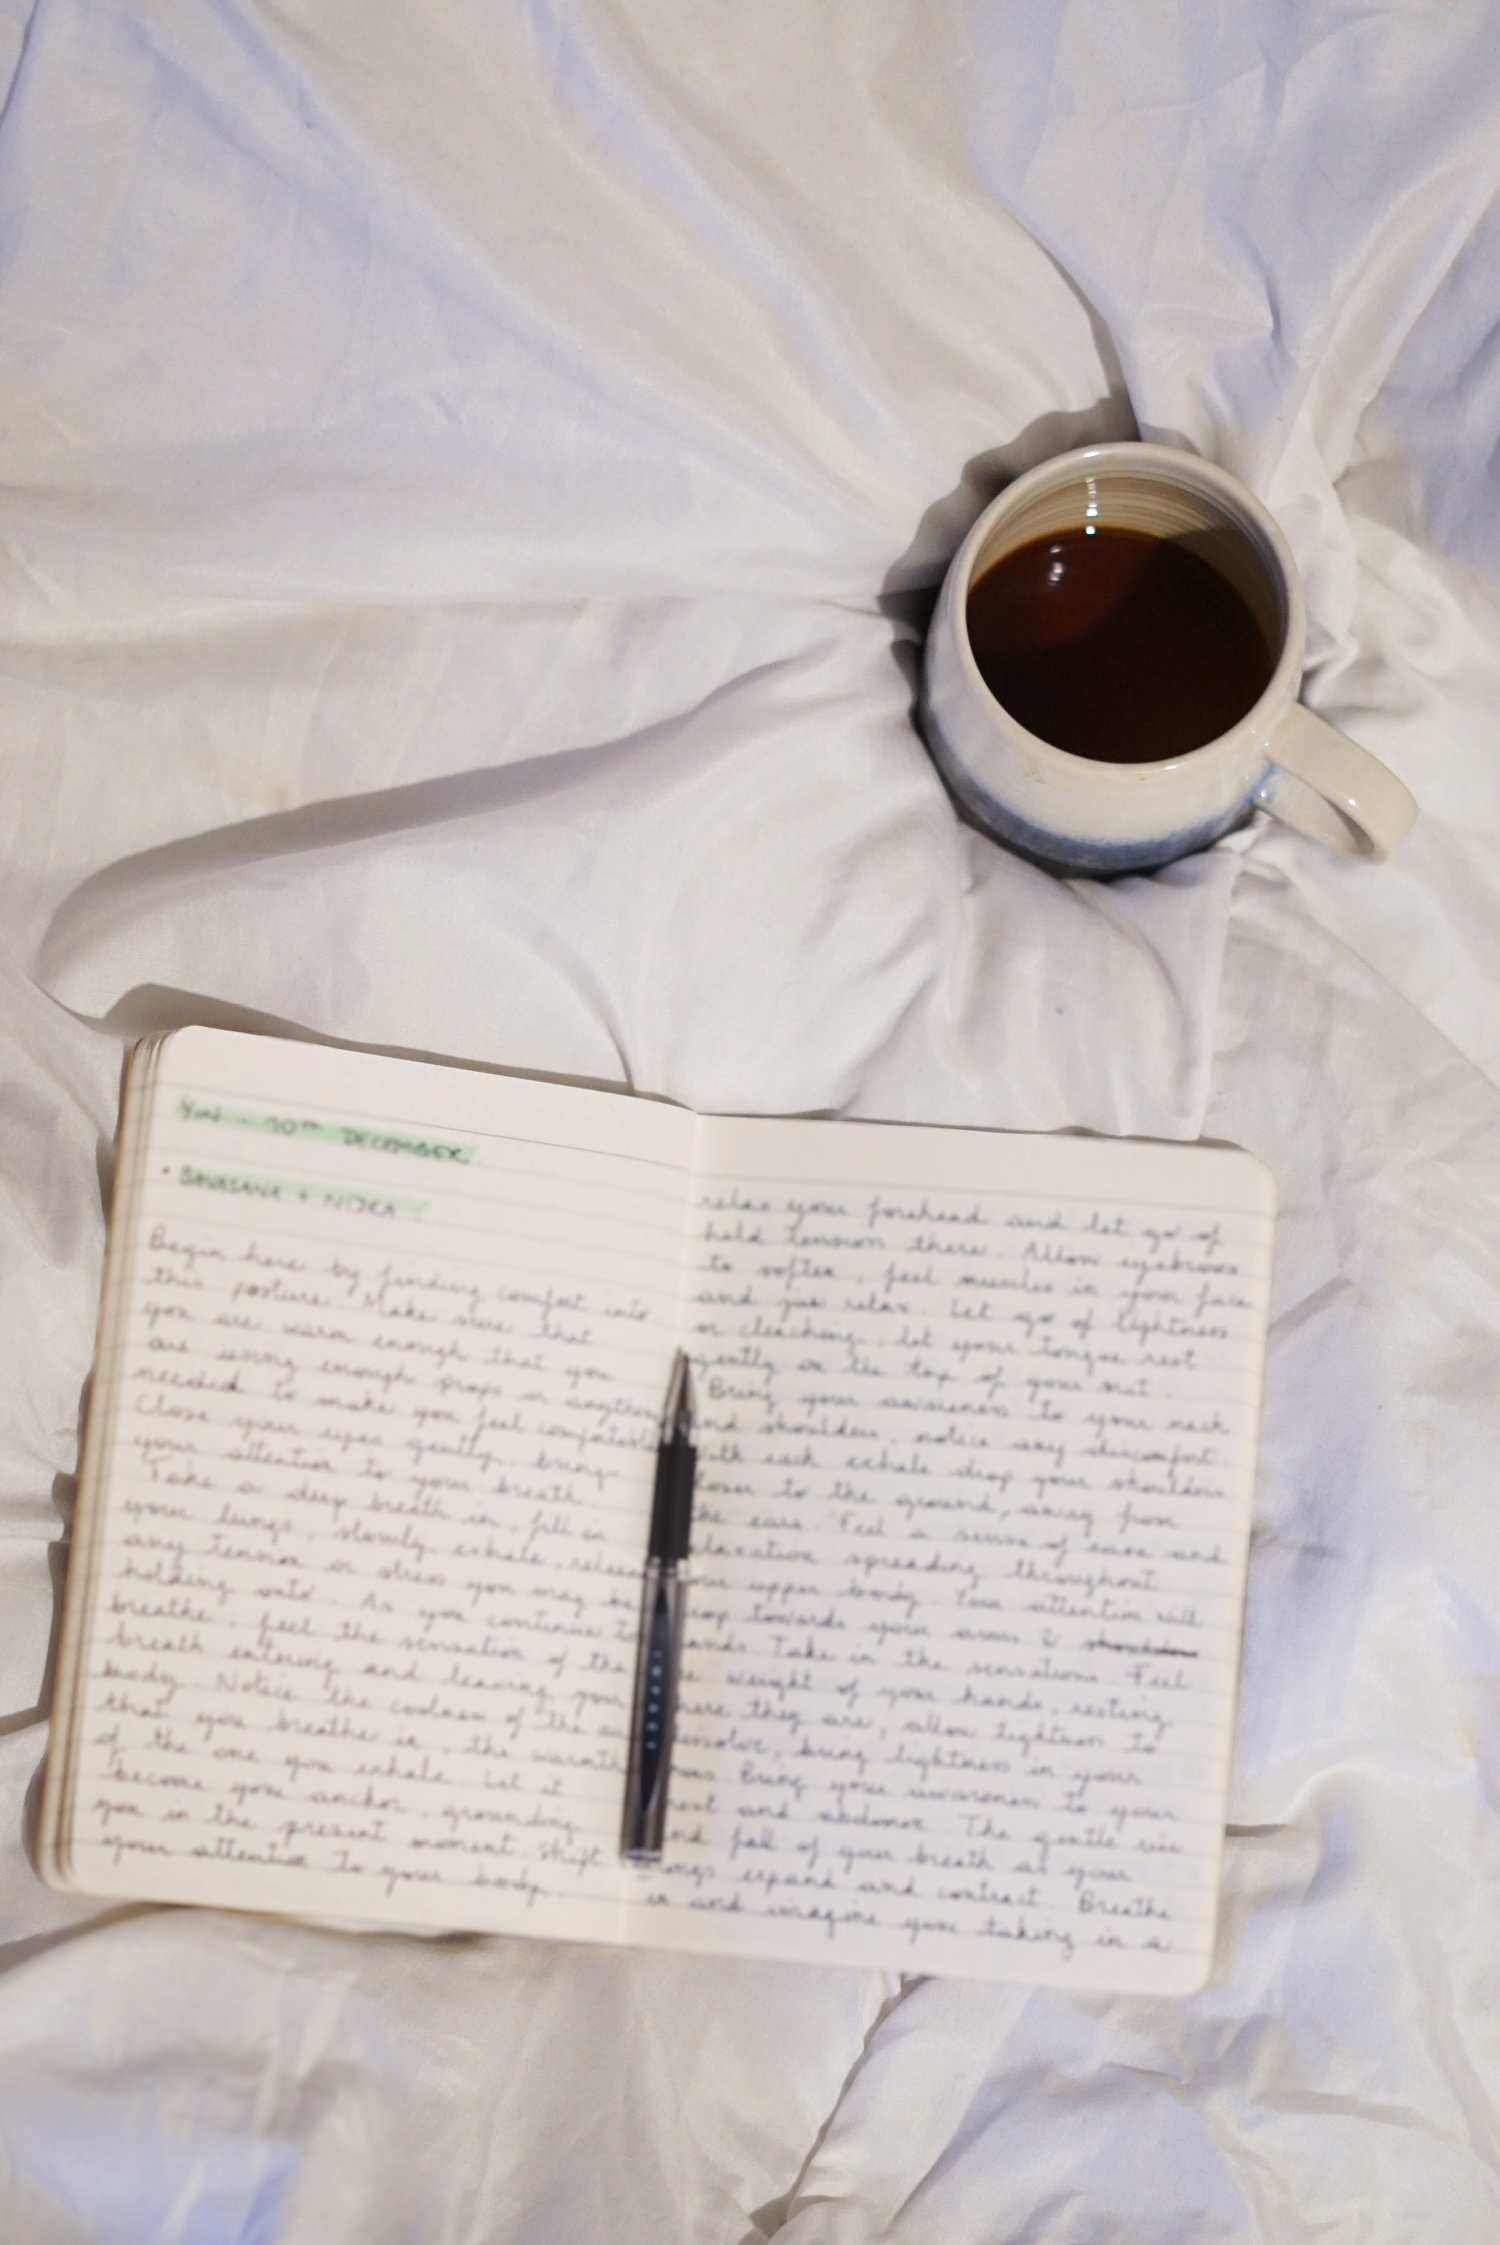 YIN - 10TH DECEMBER
• SAVASANA + NIDRA
Begin here by finding comfort into
this posture. Make sure that
you are warm enough that you
are using enough props or anything
needed to make you feel comfortable
Close your eyes gently, bring
your attention to your breath.
Take a deep breath in, fill in
your lungs, slowly exhale, release
any tension or stress you may be
holding onto. As you continue to
breathe, feel the sensation of the
breath entering and leaving your
body. Notice the coolness of the air
that you breathe in, the warmth
of the one you exhale. Let it
become your anchor, grounding
you in the present moment. Shift
your attention to your body.
relax your forehead and let go of
held tension there. Allow eyebrows
to soften, feel muscles in your face
and jaw relax. Let go of tightness
or clenching, let your tongue rest
gently on the top of your
Bring your awareness to your neck
and shoulders, notice any discomfort.
with each exhale drop your shoulders
closer to the ground, away from
the ears. Feel a sense of ease and
relaxation spreading throughout
your upper body. Your attention will
drop towards your arms & shoulders
hands. Take in the sensations. Feel
the weight of your hands, resting
where they are, allow tightness to
dissolve, bring lightness in your
arms. Bring your awareness to your
chest and abdomen. The gentle rise
and fall of your breath as your
lungs expand and contract. Breathe
in and imagine you taking in a